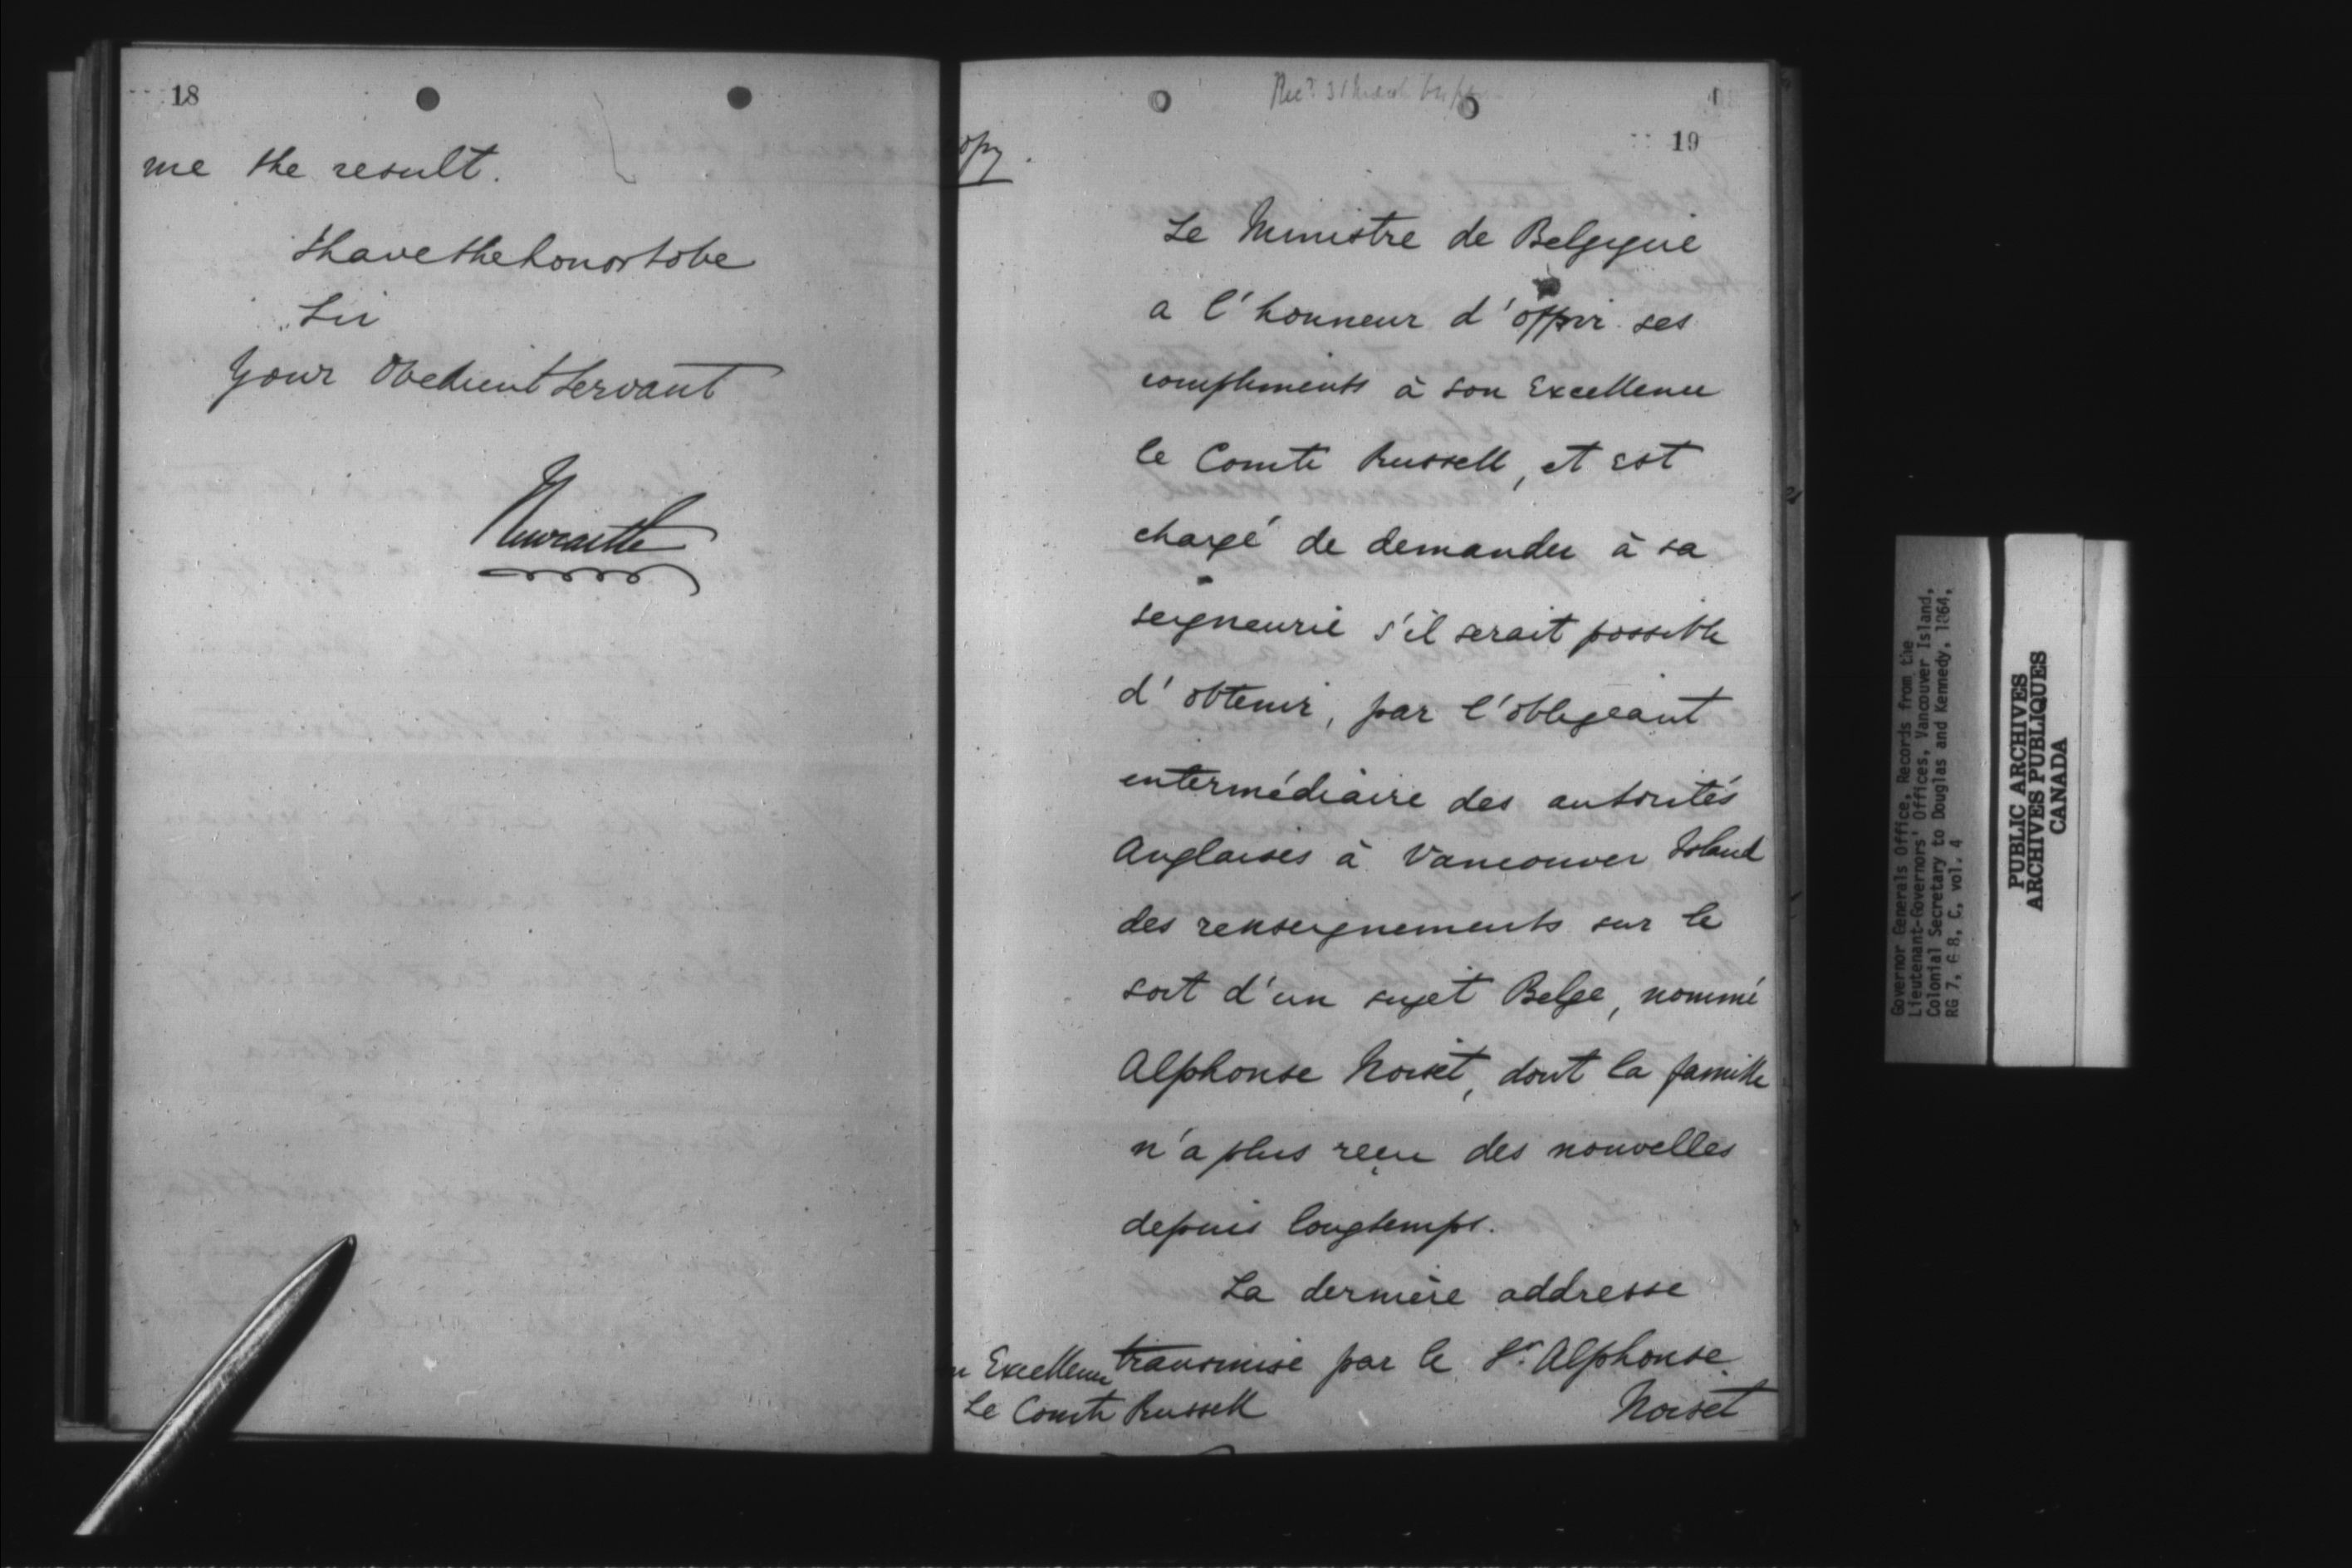 18
me the result.
I have the honor to be
Sir
Your Obedient Servant
Newcastle
19
opy.
Le Ministre de Belgique
a l'honneur d'offrir ses
compliments à Son Excellence
le Comte Russell, et est
chargé de demander à sa
seigneurie s'il serait possible
d'obtenir, par l'obligeant
intermédiaire des autorités
Anglaises à Vancouver Island
des renseignements sur le
sort d'un sujet Belge, nommé
Alphonse Noiset, dont la famille
n'a plus reçu des nouvelles
depuis longtemps.
La dernière addresse
transmise par le Sr. Alphonse
Noiset
n Excellence
Le Comte Russell
Governor Generals Office, Records from the
Lieutenant-Governors' Offices, Vancouver Island,
Colonial Secretary to Douglas and Kennedy, 1864,
RG 7, G 8, C, vol. 4
PUBLIC ARCHIVES
ARCHIVES PUBLIQUES
CANADA